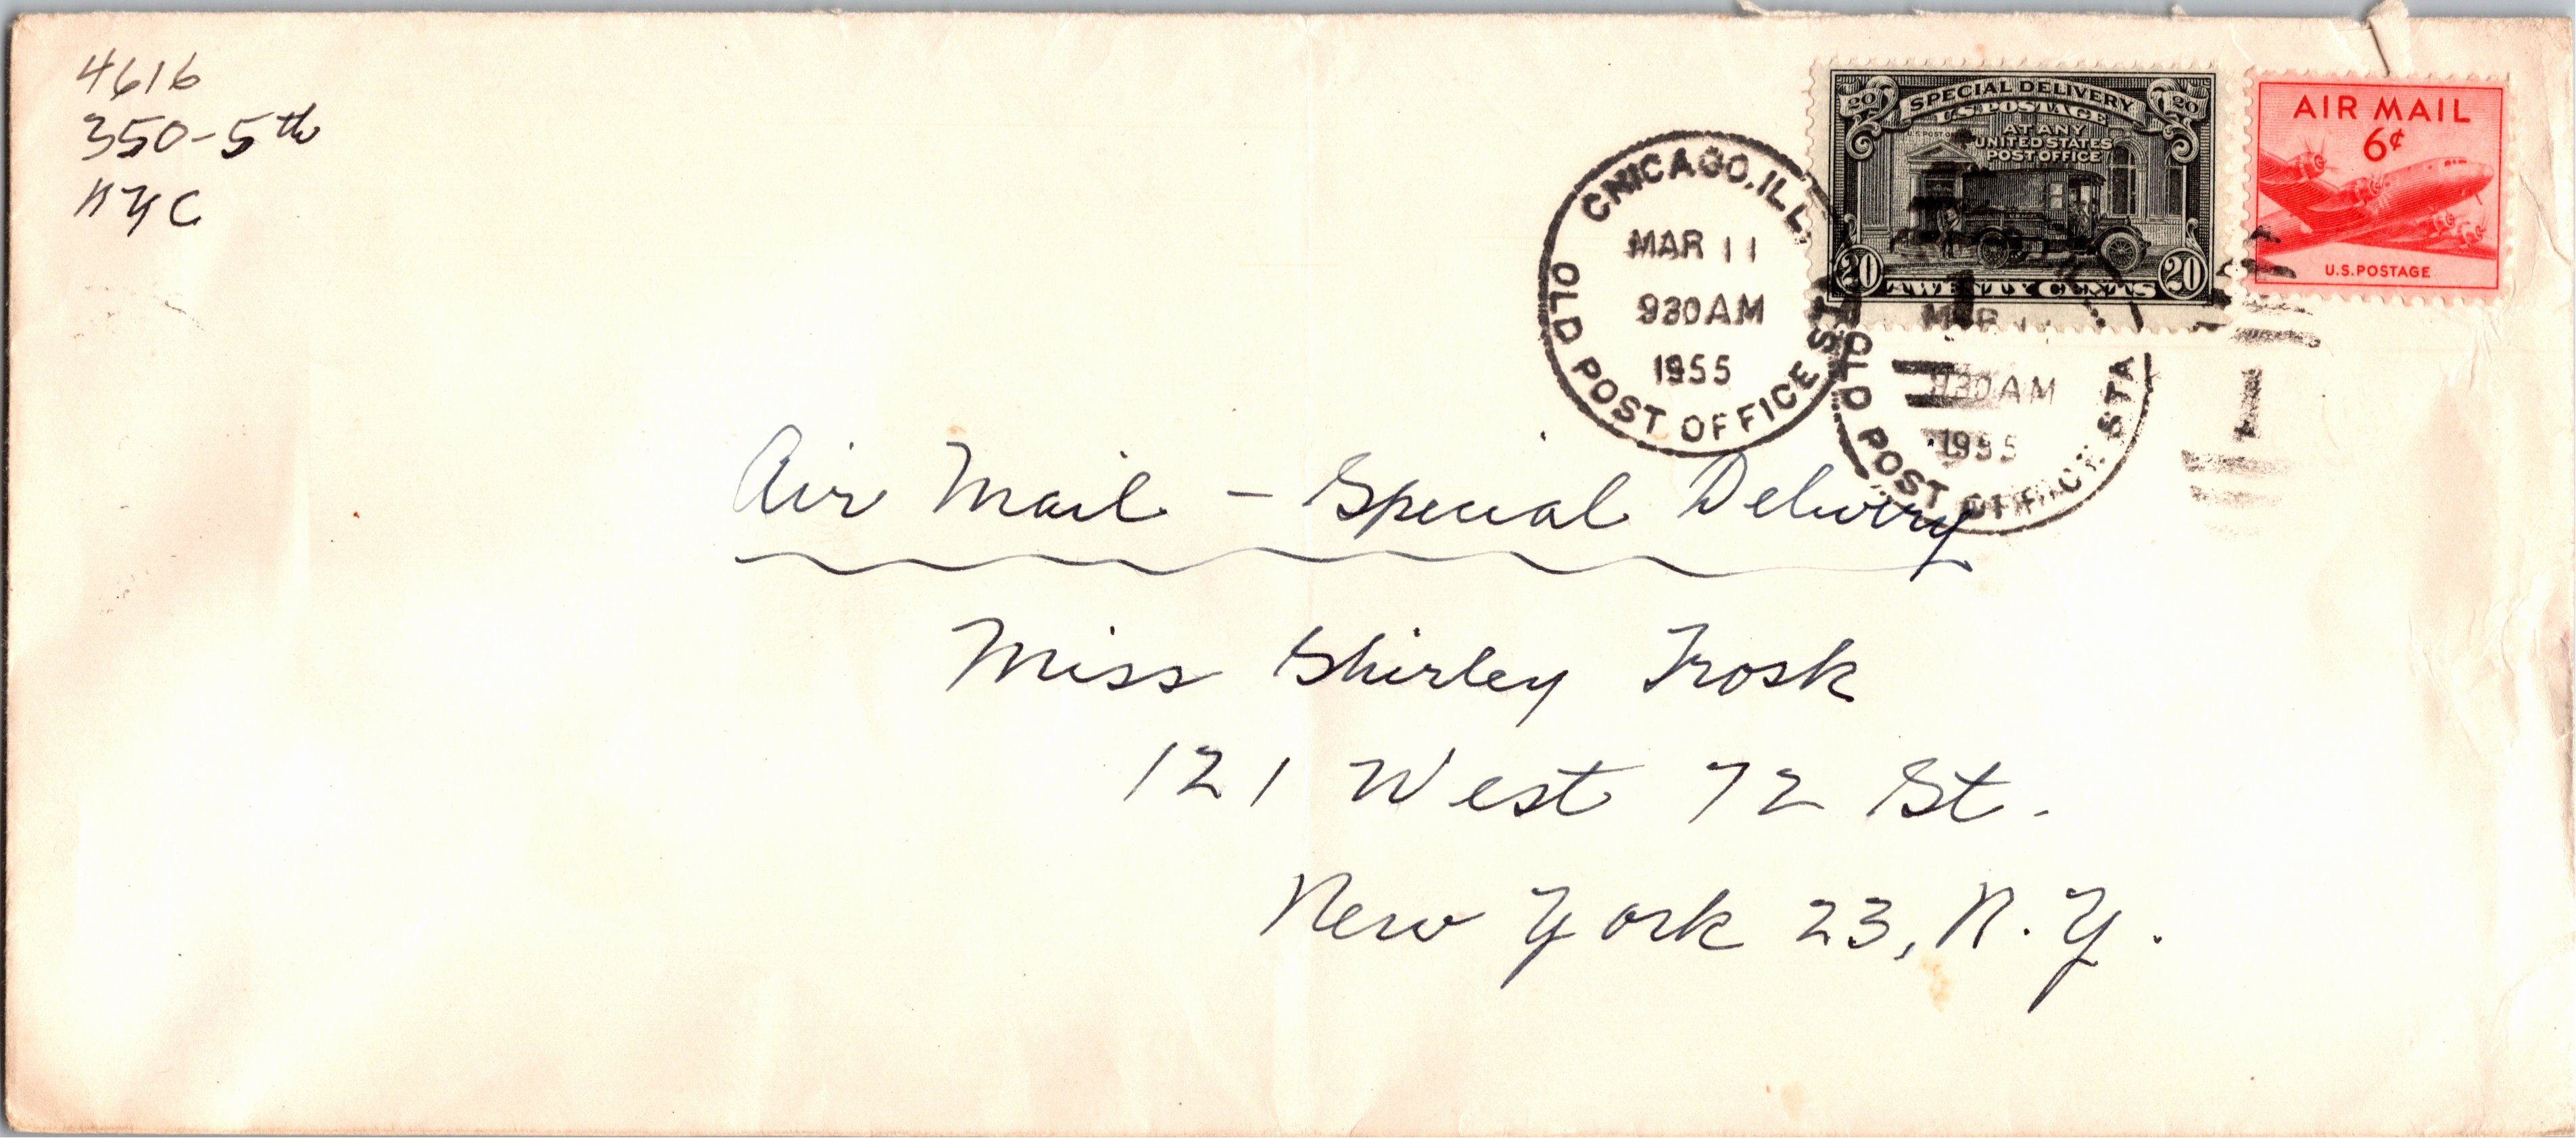 4616
350-5th
NYC
SPECIAL DELIVERY
U.S. POSTAGE
AT ANY
UNITED STATES
POST OFFICE
20 20
20 TWENTY CENTS 20
AIR MAIL
6¢
U.S. POSTAGE
CHICAGO, ILL.
MAR 11
930AM
1955
OLD POST OFFICE STA
MAR
930AM
1955
OLD POST OFFICE STA
Air Mail - Special Delivery
Miss Shirley Trosk
121 West 72 St.
New York 23, N.Y.